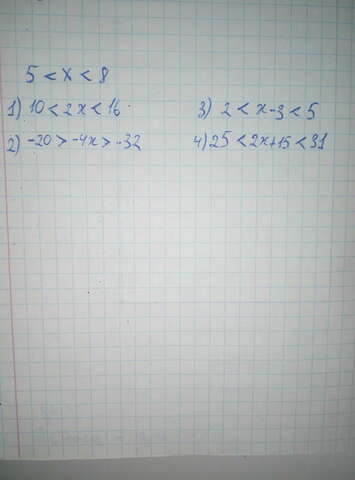 5 < x < 8
1) 10 < 2x < 16 3) 2 < x-3 < 5
2) -20 > -4x > -32 4) 25 < 2x+15 < 31